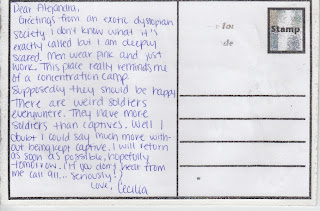 Dear Alejandra,
Greetings from an exotic dystopian
society I don't know what it's
exactly called but I am deeply
scared. Men wear pink and just
work. This place really reminds me
of a concentration camp.
Supposedly they should be happy
There are weird soldiers
everywhere. They have more
soldiers than captives. Well I
doubt I could say much more with-
out being kept captive. I will return
as soon as possible, hopefully
tomorrow. (If you don't hear from
me call 911... seriously!)
Love, Cecilia
Stamp
for
de